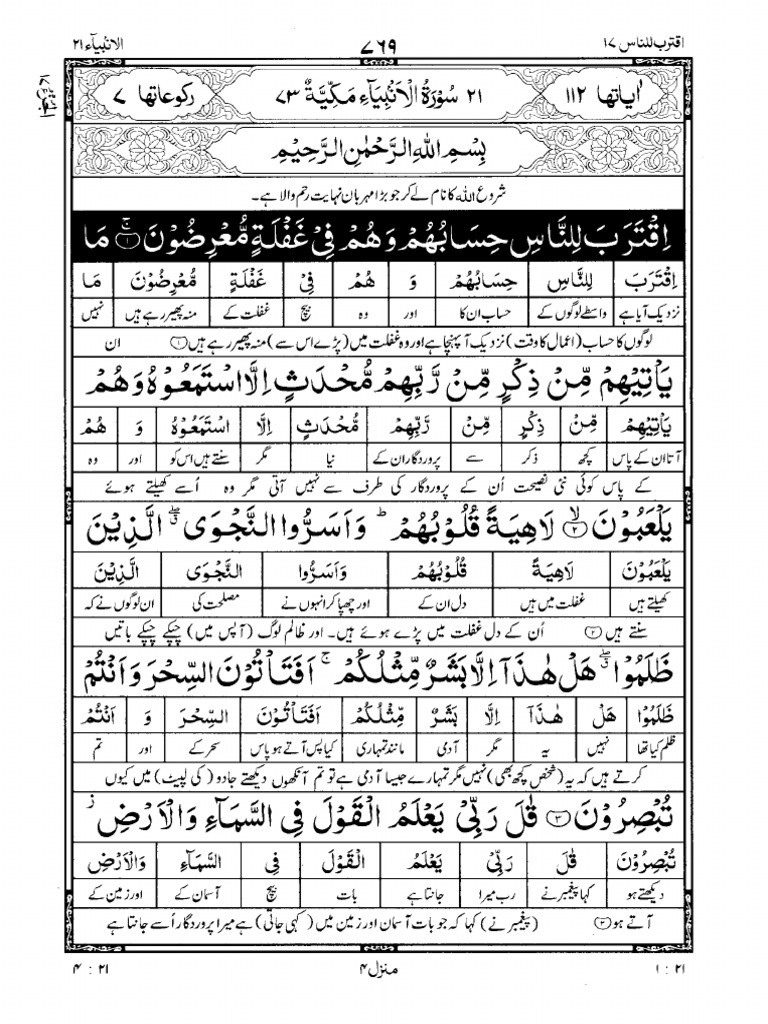 اقترب للناس ۱۷ ۷۶۹ الانبیآء ۲۱
اٰیاتھا ۱۱۲ ۲۱ سُوۡرَةُ الۡاَنۡۢبِیَآءِ مَکِّیَّةٌ ۷۳ رکوعاتھا ۷
بِسۡمِ اللّٰہِ الرَّحۡمٰنِ الرَّحِیۡمِ
شروع اللہ کا نام لے کر جو بڑا مہربان نہایت رحم والا ہے۔
اِقۡتَرَبَ لِلنَّاسِ حِسَابُهُمۡ وَهُمۡ فِیۡ غَفۡلَةٍ مُّعۡرِضُوۡنَ ۚ‏﴿۱﴾ مَا
اِقۡتَرَبَ لِلنَّاسِ حِسَابُهُمۡ وَ هُمۡ فِیۡ غَفۡلَةٍ مُّعۡرِضُوۡنَ مَا
نزدیک آیا ہے واسطے لوگوں کے حساب ان کا اور وہ بیچ غفلت کے منہ پھیر رہے ہیں نہیں
لوگوں کا حساب (اعمال کا وقت) نزدیک آ پہنچا ہے اور وہ غفلت میں (پڑے اس سے) منہ پھیر رہے ہیں ﴿۱﴾ ان
یَاۡتِیۡهِمۡ مِّنۡ ذِکۡرٍ مِّنۡ رَّبِّهِمۡ مُّحۡدَثٍ اِلَّا اسۡتَمَعُوۡهُ وَهُمۡ
یَاۡتِیۡهِمۡ مِّنۡ ذِکۡرٍ مِّنۡ رَّبِّهِمۡ مُّحۡدَثٍ اِلَّا اسۡتَمَعُوۡهُ وَ هُمۡ
آتا ان کے پاس کچھ ذکر سے پروردگار ان کے نیا مگر سنتے ہیں اس کو اور وہ
کے پاس کوئی نئی نصیحت اُن کے پروردگار کی طرف سے نہیں آتی مگر وہ اُسے کھیلتے ہوئے
یَلۡعَبُوۡنَ ۙ‏﴿۲﴾ لَاهِیَةً قُلُوۡبُهُمۡ ؕ وَاَسَرُّوا النَّجۡوَی ۖۗ الَّذِیۡنَ
یَلۡعَبُوۡنَ لَاهِیَةً قُلُوۡبُهُمۡ وَاَسَرُّوا النَّجۡوَی الَّذِیۡنَ
کھیلتے ہیں غفلت میں ہیں دل ان کے اور چھپا کر انہوں نے مصلحت کی ان لوگوں نے کہ
سنتے ہیں ﴿۲﴾ اُن کے دل غفلت میں پڑے ہوئے ہیں۔ اور ظالم لوگ (آپس میں) چپکے چپکے باتیں
ظَلَمُوۡا ۖۗ هَلۡ هٰذَاۤ اِلَّا بَشَرٌ مِّثۡلُکُمۡ ۚ اَفَتَاۡتُوۡنَ السِّحۡرَ وَاَنۡتُمۡ
ظَلَمُوۡا هَلۡ هٰذَاۤ اِلَّا بَشَرٌ مِّثۡلُکُمۡ اَفَتَاۡتُوۡنَ السِّحۡرَ وَ اَنۡتُمۡ
ظلم کیا تھا نہیں یہ مگر آدمی مانند تمہاری کیا پس آتے ہو پاس سحر کے اور تم
کرتے ہیں کہ یہ (شخص کچھ بھی) نہیں مگر تمہارے جیسا آدمی ہے تو تم آنکھوں دیکھتے جادو (کی لپیٹ) میں کیوں
تُبۡصِرُوۡنَ ‏﴿۳﴾ قٰلَ رَبِّیۡ یَعۡلَمُ الۡقَوۡلَ فِی السَّمَآءِ وَالۡاَرۡضِ ۫
تُبۡصِرُوۡنَ قٰلَ رَبِّیۡ یَعۡلَمُ الۡقَوۡلَ فِی السَّمَآءِ وَالۡاَرۡضِ
دیکھتے ہو کہا پیغمبر نے رب میرا جانتا ہے بات بیچ آسمان کے اور زمین کے
آتے ہو ﴿۳﴾ (پیغمبر نے) کہا کہ جو بات آسمان اور زمین میں (کہی جاتی) ہے میرا پروردگار اُسے جانتا ہے
۲۱ : ۱ منزل ۴ ۲۱ : ۴